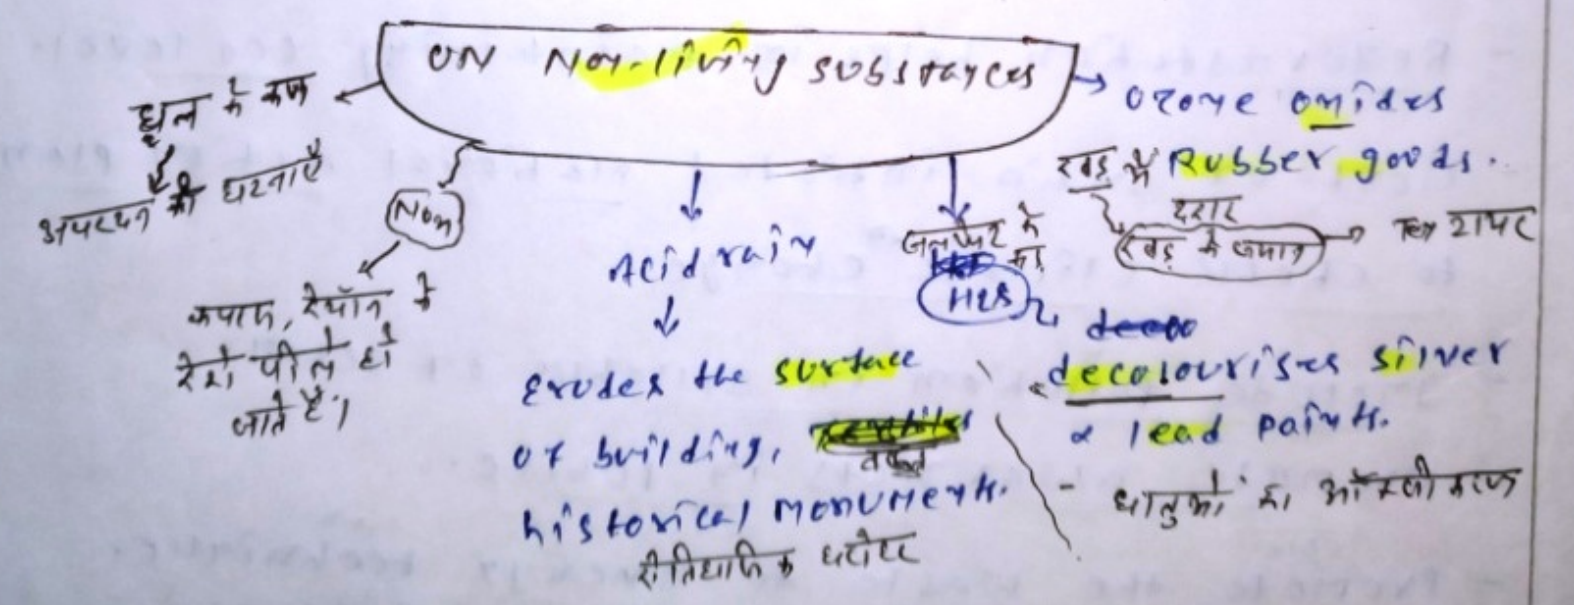 ON Non-living substances
धूल के कण
अपरदन की घटनाएँ
Nox
कपास, रेयॉन के
रेशे पीले हो
जाते है।
Acid rain
Erodes the surface
of building,
historical monuments.
ऐतिहासिक धरोहर
H2S
decolourises silver
& lead paints.
- धातुओं का ऑक्सीकरण
ozone oxides
रबड़ में Rubber goods.
दरार
रबड़ के जमाव
टायर